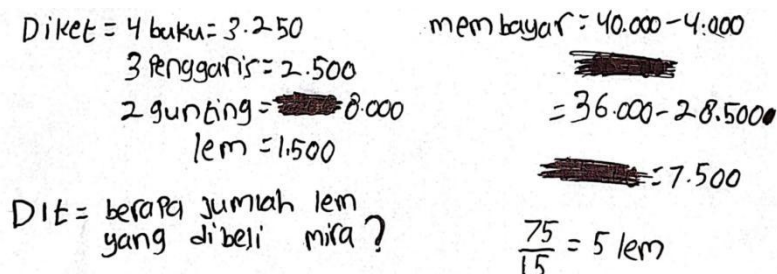 Diket = 4 buku = 3.250
3 Penggaris = 2.500
2 gunting = 8.000
lem = 1.500
Dit = berapa jumlah lem
yang dibeli mira ?
membayar = 40.000 - 4.000
= 36.000 - 28.500
= 7.500
75/15 = 5 lem